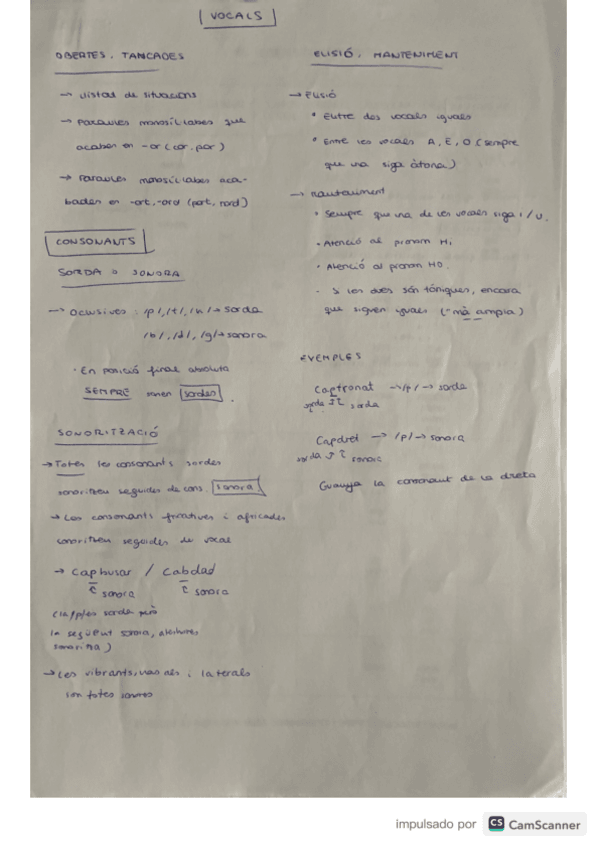 VOCALS
OBERTES, TANCADES
→ llistat de situacions
→ Paraules monosíl·labes que
acaben en -or (cor, por)
→ Paraules monosíl·labes aca-
bades en -ort, -ord (port, nord)
CONSONANTS
SORDA o SONORA
→ Oclusives: /p/, /t/, /k/ → sorda
/b/, /d/, /g/ → sonora
· En posició final absoluta
SEMPRE sonen sordes.
SONORITZACIÓ
→ Totes les consonants sordes
sonoritzen seguides de cons. sonora
→ Les consonants fricatives i africades
sonoritzen seguides de vocal
→ Caphusar / Cabdad
c sonora c sonora
(la /p/ es sorda però
la següent sonora, aleshores
sonoritza)
→ Les vibrants, nasals i laterals
son totes sonores
ELISIÓ, MANTENIMENT
→ Elisió
* Entre dos vocals iguals
* Entre les vocals A, E, O (sempre
que una siga àtona)
→ Manteniment
· Sempre que una de les vocals siga i/u.
· Atenció al pronom Hi
· Atenció al pronom HO.
· Si les dues són tòniques, encara
que siguen iguals (mà ampla)
EXEMPLES
Captronat → /p/ → sorda
sorda c sorda
Capdret → /p/ → sonora
sorda c sonora
Guanya la consonant de la dreta
impulsado por CS CamScanner